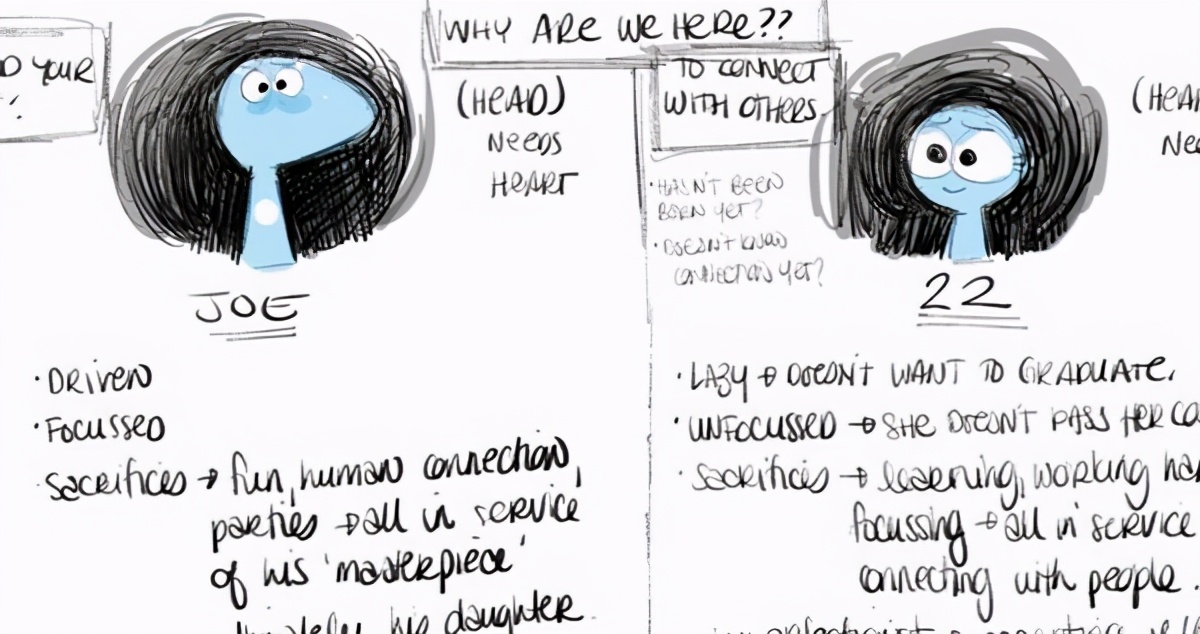 WHY ARE WE HERE??
D YOUR
TO CONNECT
WITH OTHERS
(HEAD)
NEEDS
HEART
(HEA
NE
· HASN'T BEEN
BORN YET?
· DOESN'T KNOW
CONNECTION YET?
JOE
· DRIVEN
· FOCUSSED
· SACRIFICES → fun, human connection,
parties → all in service
of his 'masterpiece'
his daughter
22
· LAZY → DOESN'T WANT TO GRADUATE.
· UNFOCUSSED → SHE DOESN'T PASS HER CO
· SACRIFICES → learning, working har
focussing → all in service
connecting with people.